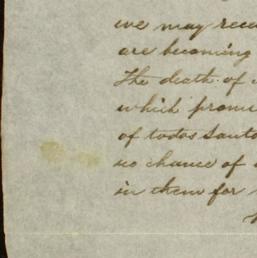 we may rece
are becoming
The death of
which prome
of todos Santo
no chance of
in them for